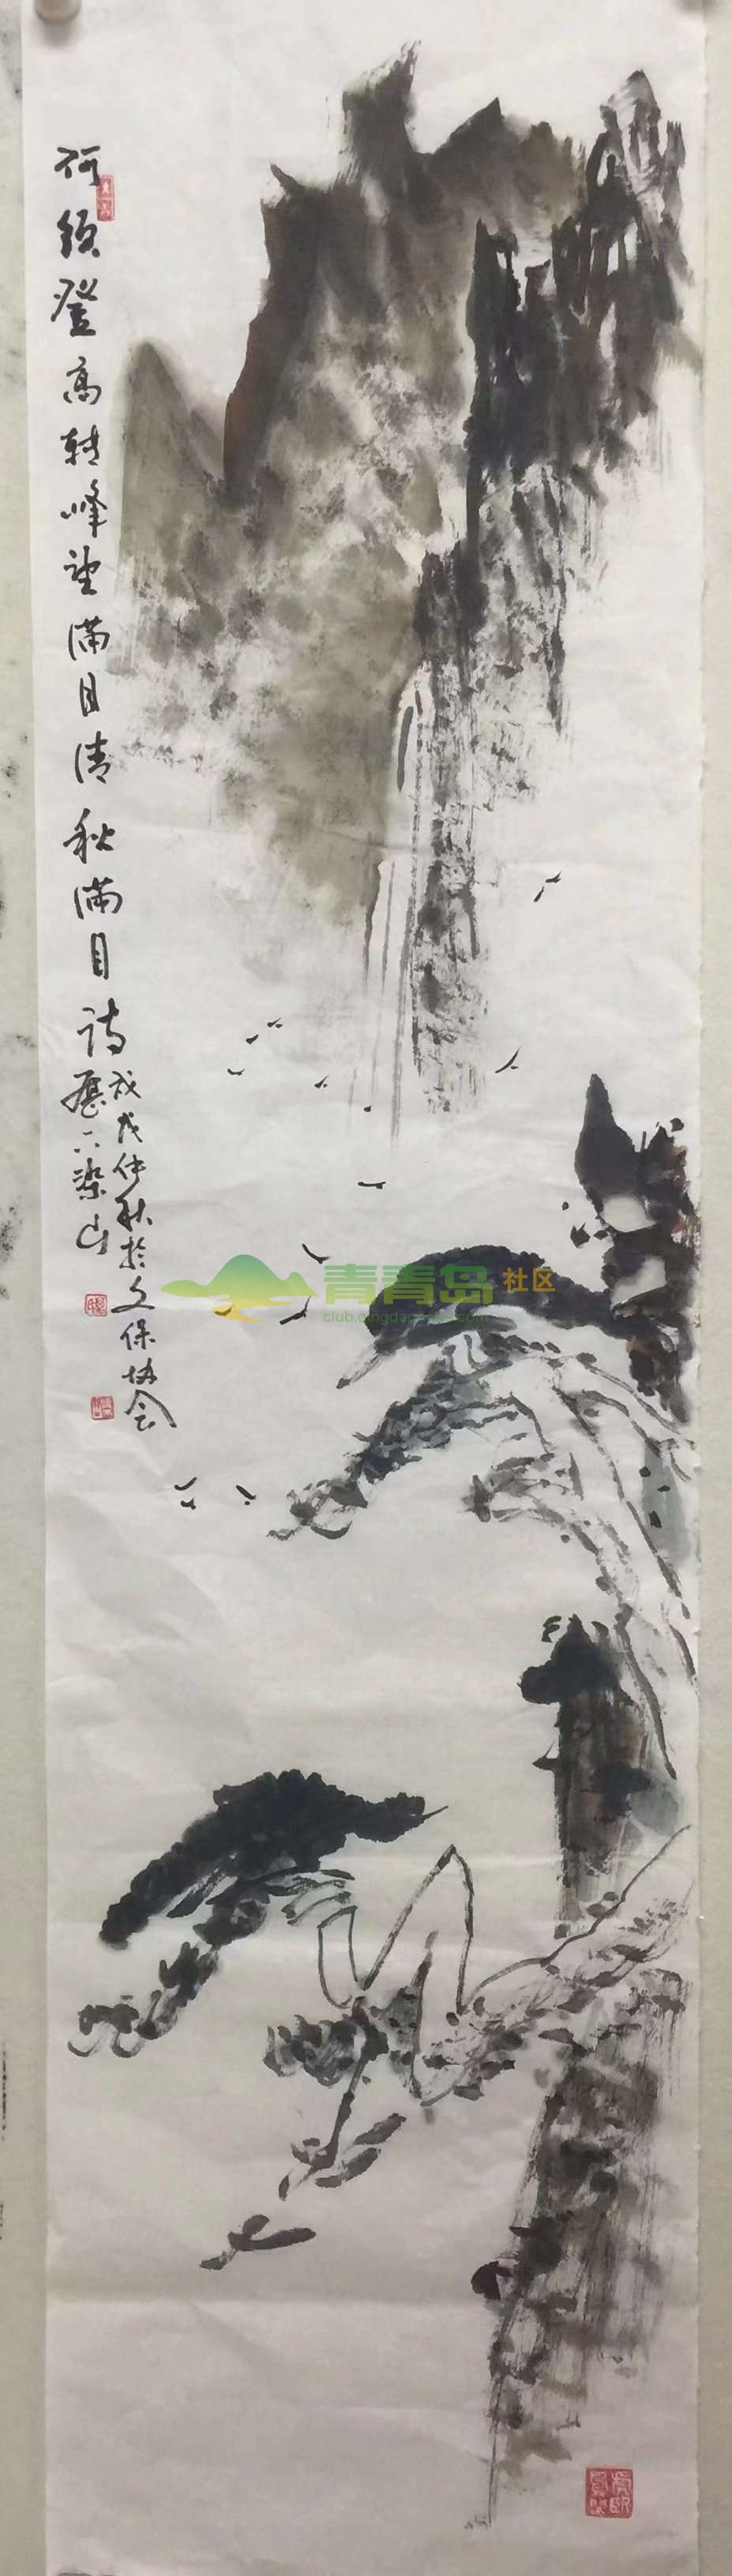 何须登高转峰望满目清秋满目诗
戊戌仲秋於文保协会
梁山
青青岛社区
club.qingdaonews.com